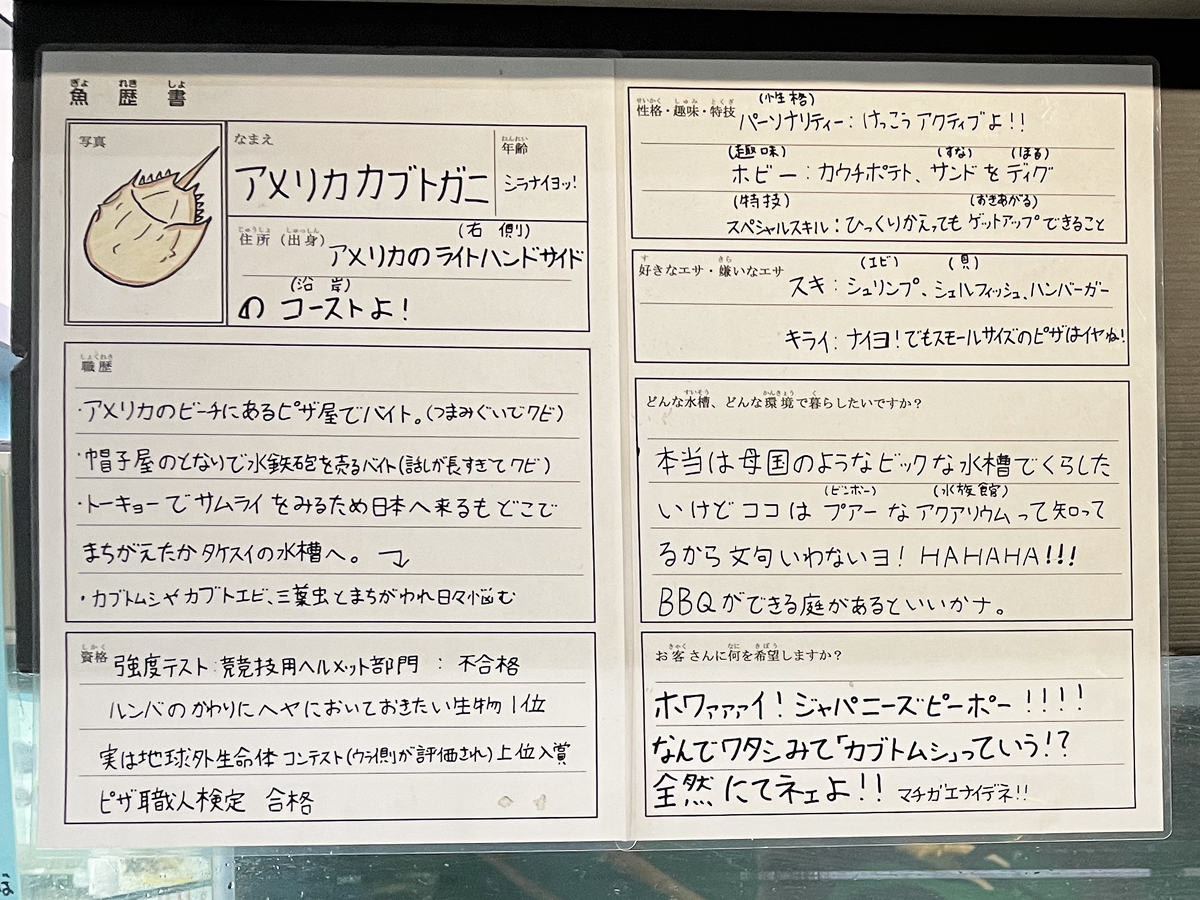 魚歴書
写真
なまえ
アメリカカブトガニ
年齢
シラナイヨッ!
住所(出身) アメリカのライトハンドサイド(右側)
の コーストよ!(沿岸)
職歴
・アメリカのビーチにあるピザ屋でバイト。(つまみぐいでクビ)
・帽子屋のとなりで水鉄砲を売るバイト(話しが長すぎてクビ)
・トーキョーでサムライをみるため日本へ来るもどこで
まちがえたかタケスイの水槽へ。
・カブトムシやカブトエビ、三葉虫とまちがわれ日々悩む
資格 強度テスト:競技用ヘルメット部門 : 不合格
ルンバのかわりにヘヤにおいておきたい生物 1位
実は地球外生命体コンテスト(ウラ側が評価され)上位入賞
ピザ職人検定 合格
性格・趣味・特技 (性格)
パーソナリティー:けっこうアクティブよ!!
(趣味) (すな) (ほる)
ホビー:カウチポテト、サンドをディグ
(特技) (おきあがる)
スペシャルスキル:ひっくりかえってもゲットアップできること
好きなエサ・嫌いなエサ (エビ) (貝)
スキ:シュリンプ、シェルフィッシュ、ハンバーガー
キライ:ナイヨ!でもスモールサイズのピザはイヤね!
どんな水槽、どんな環境で暮らしたいですか?
本当は母国のようなビックな水槽でくらした
(ビンボー) (水族館)
いけどココはプアーなアクアリウムって知って
るから文句いわないヨ! HAHAHA!!!
BBQができる庭があるといいかナ。
お客さんに何を希望しますか?
ホワァァァイ!ジャパニーズピーポー!!!!
なんでワタシみて「カブトムシ」っていう!?
全然にてネェよ!! マチガエナイデネ!!